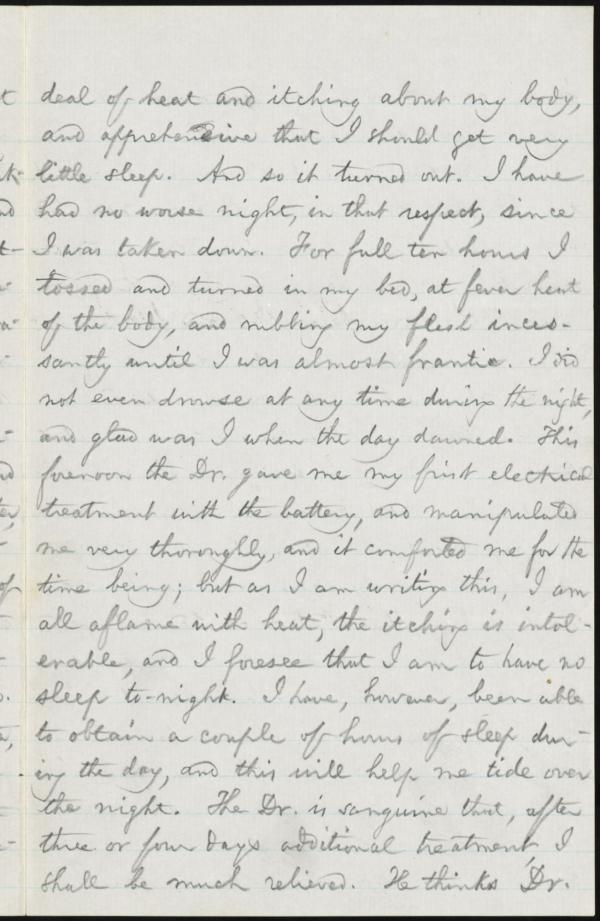 deal of heat and itching about my body,
and apprehensive that I should get very
little sleep. And so it turned out. I have
had no worse night, in that respect, since
I was taken down. For full ten hours I
tossed and turned in my bed, at fever heat
of the body, and rubbing my flesh inces-
santly until I was almost frantic. I did
not even drowse at any time during the night,
and glad was I when the day dawned. This
forenoon the Dr. gave me my first electrical
treatment with the battery, and manipulated
me very thoroughly, and it comforted me for the
time being; but as I am writing this, I am
all aflame with heat, the itching is intol-
erable, and I foresee that I am to have no
sleep to-night. I have, however, been able
to obtain a couple of hours of sleep dur-
ing the day, and this will help me tide over
the night. The Dr. is sanguine that, after
three or four days additional treatment, I
shall be much relieved. He thinks Dr.